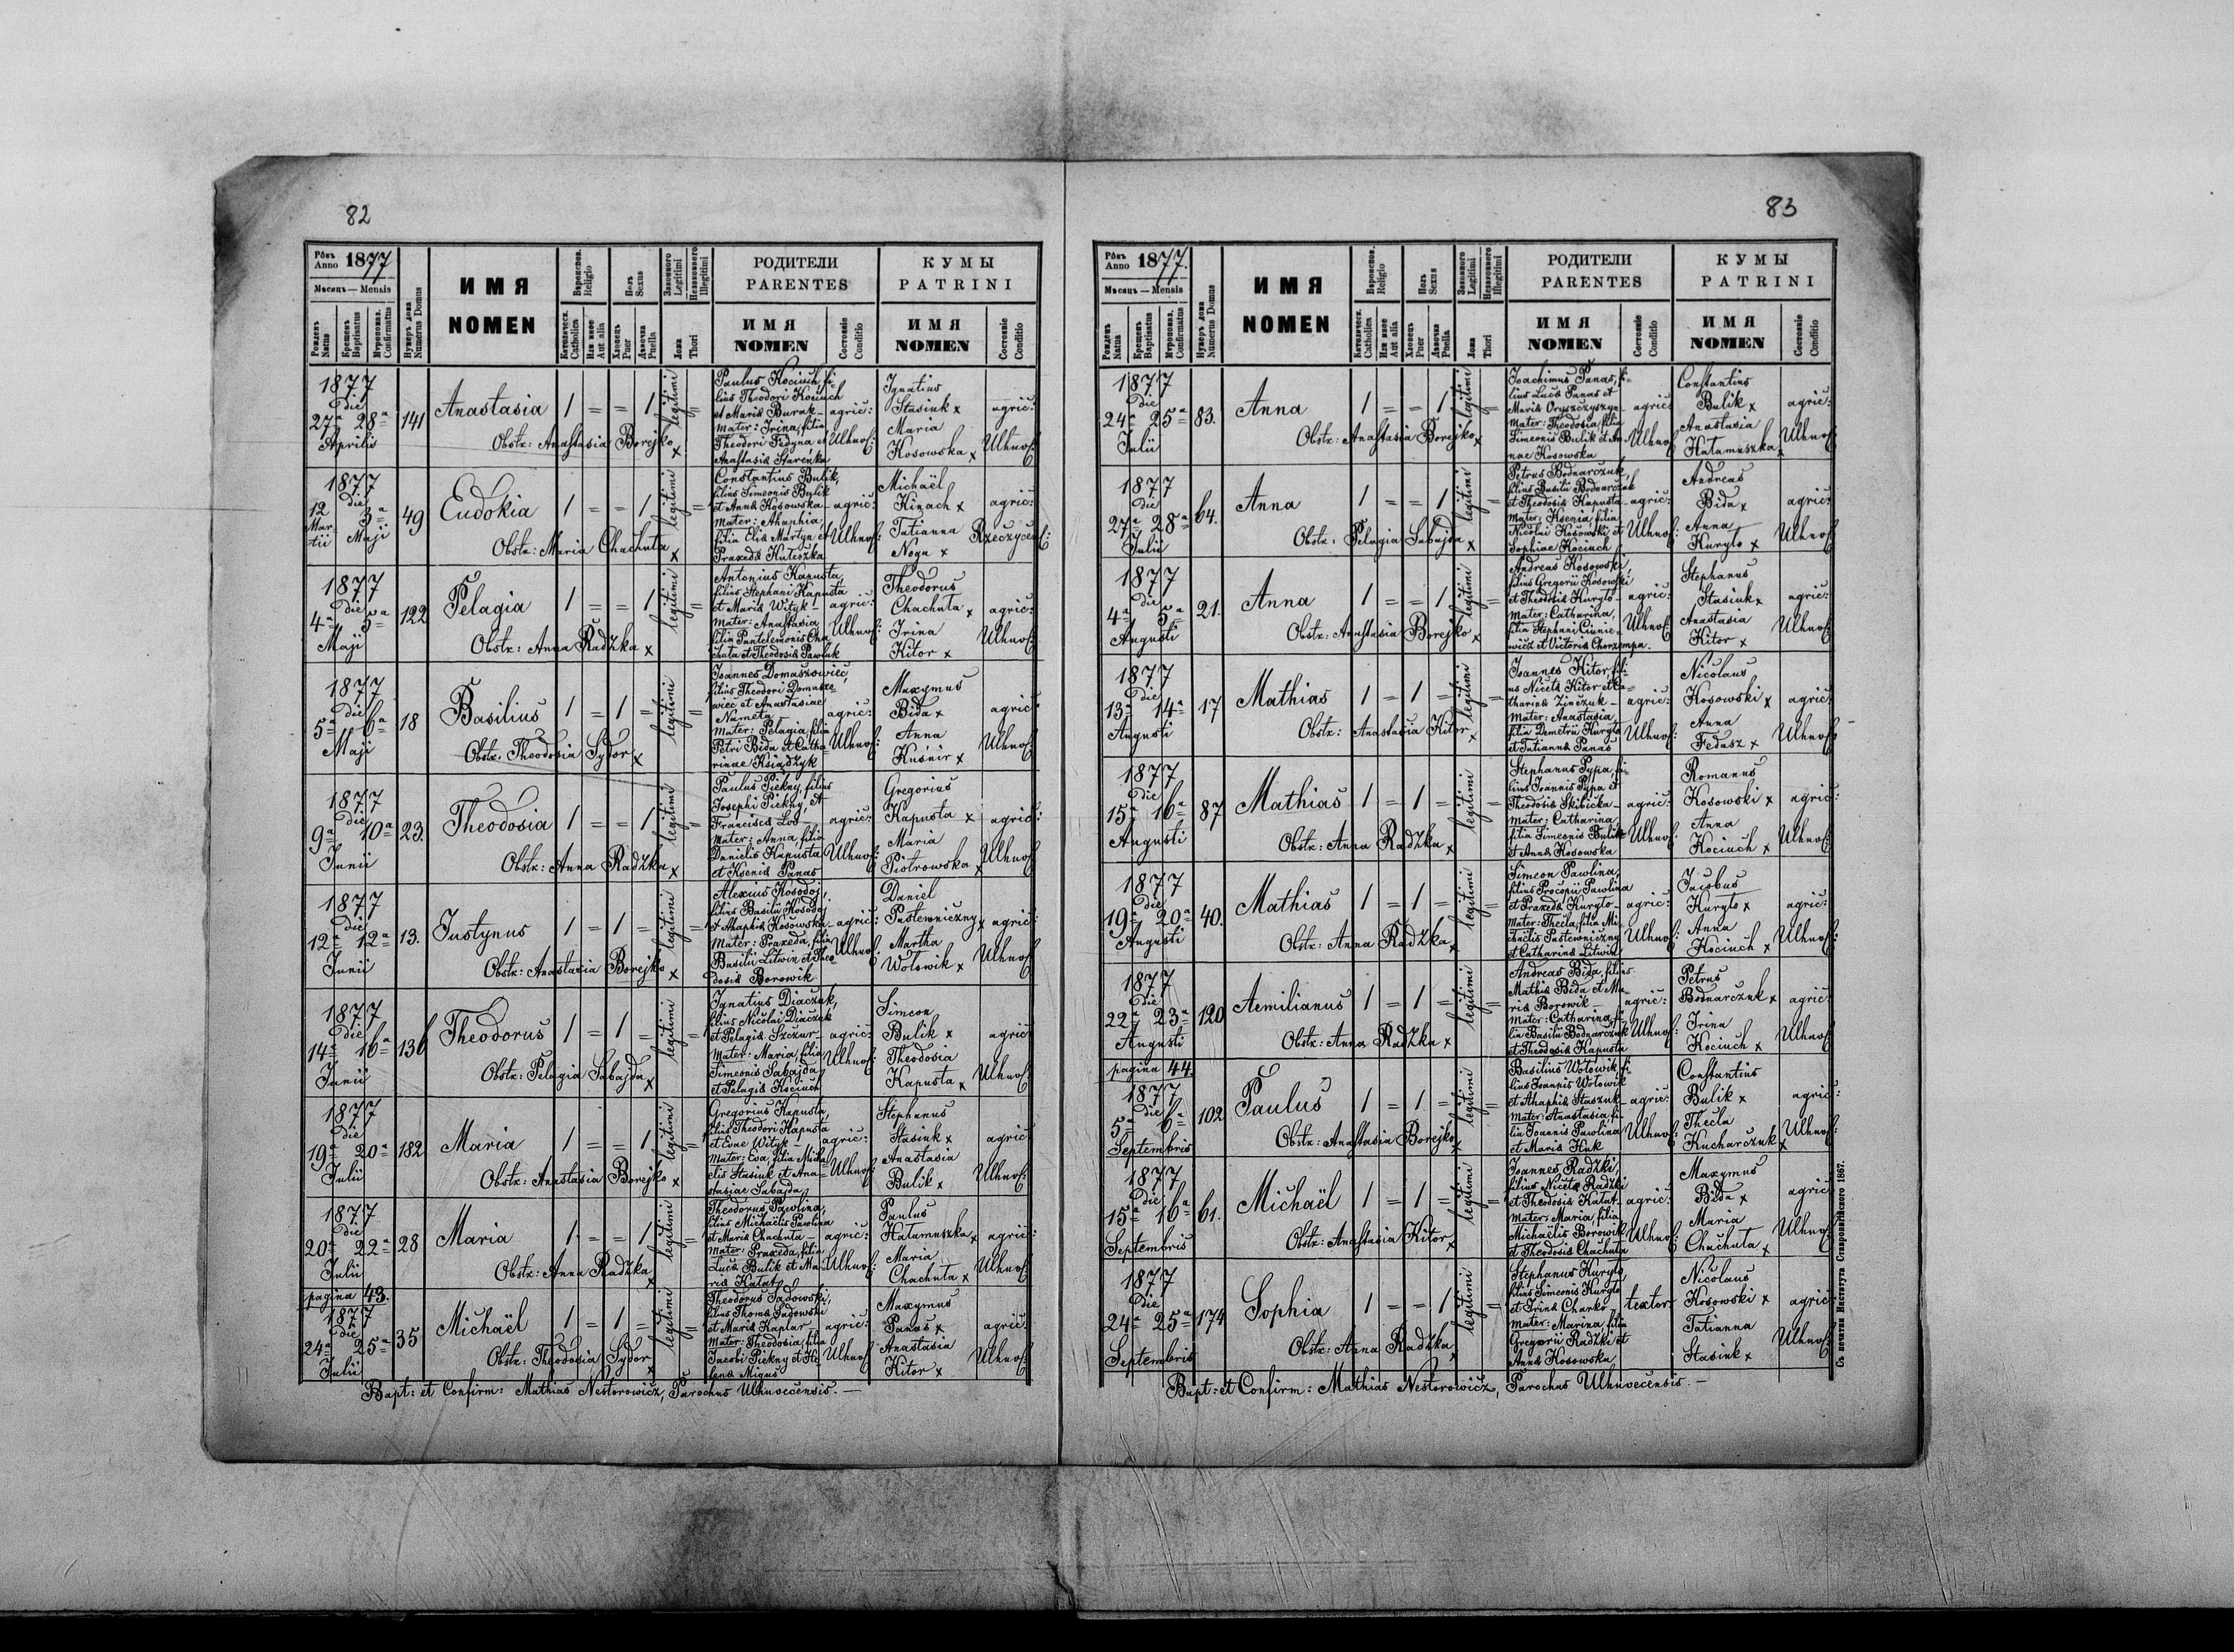 82
Рôкъ Anno 1877
Мѣсяцъ — Mensis
Рожденъ Natus
Крещенъ Baptisatus
Мѵропома. Confirmatus
Нумеръ дома Numerus Domus
ИМЯ NOMEN
Вѣроиспов. Religio
Католическ. Catholica
Или иное Aut alia
Полъ Sexus
Хлопецъ Puer
Дѣвочка Puella
Законного Legitimi
Незаконного Illegitimi
Ложа Thori
РОДИТЕЛИ PARENTES
ИМЯ NOMEN
Состояніе Conditio
КУМЫ PATRINI
ИМЯ NOMEN
Состояніе Conditio
1877 die 27ª 28ª Aprilis
141
Anastasia
1 = = 1
legitimi =
Obstx: Anastasia Borejko x
Paulus Kociuch, fi-
lius Theodori Kociuch
et Mariæ Burak -
Mater: Irina, filia
Theodori Fidyna et
Anastasiæ Starenka
agric: Uhnov:
Ignatius
Stasiuk x
Maria
Kosowska x
agric: Uhnov:
1877 die 12 Martii 3ª Maji
49
Eudokia
1 = = 1
legitimi =
Obstx: Maria Chachuta x
Constantius Bulik,
filius Simeonis Bulik
et Annæ Kosowska -
Mater: Ahaphia,
filia Eliæ Martyn et
Praxedæ Kuteszka
agric: Uhnov:
Michaël
Kinach x
Tatianna
Noga x
agric: Rzeczyces:
1877 die 4ª 5ª Maji
122
Pelagia
1 = = 1
legitimi =
Obstx: Anna Radzka x
Antonius Kapusta,
filius Stephani Kapusta
et Mariæ Wityk -
Mater: Anastasia
filia Pantelemonis Cha-
chuta et Theodosiæ Pawluk
agric: Uhnov:
Theodorus
Chachuta x
Irina
Kitor x
agric: Uhnov:
1877 die 5ª 6ª Maji
18
Basilius
1 = 1 =
legitimi =
Obstx: Theodosia Sydor x
Joannes Domaszowiec,
filius Theodori Domaszo-
wiec et Anastasiae
Nameta
Mater: Pelagia, filia
Petri Bida et Catha-
rinae Książdżyk
agric: Uhnov:
Maxymus
Bida x
Anna
Kuśnir x
agric: Uhnov:
1877 die 9ª 10ª Junii
23.
Theodosia
1 = = 1
legitimi =
Obstx: Anna Radzka x
Paulus Piekny, filius
Josephi Piekny et
Franciscæ Łoś -
Mater: Anna, filia
Danielis Kapusta
et Kseniæ Panas
agric: Uhnov:
Gregorius
Kapusta x
Maria
Piotrowska x
agric: Uhnov:
1877 die 12ª 12ª Junii
13.
Justynus
1 = 1 =
legitimi =
Obstx: Anastasia Borejko x
Alexius Kosodoj,
filius Basilii Kosodoj
et Ahaphiæ Kosowska -
Mater: Praxeda, filia
Basilii Litwin et Theo-
dosiæ Borowik
agric: Uhnov:
Daniel
Pustewniczny x
Martha
Wołowik x
agric: Uhnov:
1877 die 14ª 16ª Junii
136
Theodorus
1 = 1 =
legitimi =
Obstx: Pelagia Sabajda x
Ignatius Diaczuk,
filius Nicolai Diaczuk
et Pelagiæ Szczur -
Mater: Maria, filia
Simeonis Sabajda
et Pelagiæ Kociuch
agric: Uhnov:
Simeon
Bulik x
Theodosia
Kapusta x
agric: Uhnov:
1877 die 19ª 20ª Julii
182
Maria
1 = = 1
legitimi =
Obstx: Anastasia Borejko x
Gregorius Kapusta,
filius Theodori Kapusta
et Evae Wityk -
Mater: Eva, filia Micha-
elis Stasiuk et Ana-
stasiae Sabajda
agric: Uhnov:
Stephanus
Stasiuk x
Anastasia
Bulik x
agric: Uhnov:
1877 die 20ª 22ª Julii
28
Maria
1 = = 1
legitimi =
Obstx: Anna Radzka x
Theodorus Pawlina,
filius Michaëlis Pawlina
et Mariæ Chachuta -
Mater: Praxeda, filia
Lucæ Bulik et Ma-
riæ Kałat
agric: Uhnov:
Paulus
Hałamuszka x
Maria
Chachuta x
agric: Uhnov:
pagina 43.
1877 die 24ª 25ª Julii
35
Michaël
1 = 1 =
legitimi =
Obstx: Theodosia Sydor x
Theodorus Sadowski,
filius Thomæ Sadowski
et Mariæ Kaplar -
Mater: Theodosia, filia
Jacobi Piekny et He-
lenæ Migus
agric: Uhnov:
Maxymus
Panas x
Anastasia
Kitor x
agric: Uhnov:
Bapt: et Confirm: Mathias Nestorowicz, Parochus Uhnovecensis. —
83
Рôкъ Anno 1877.
Мѣсяцъ — Mensis
Рожденъ Natus
Крещенъ Baptisatus
Мѵропома. Confirmatus
Нумеръ дома Numerus Domus
ИМЯ NOMEN
Вѣроиспов. Religio
Католическ. Catholica
Или иное Aut alia
Полъ Sexus
Хлопецъ Puer
Дѣвочка Puella
Законного Legitimi
Незаконного Illegitimi
Ложа Thori
РОДИТЕЛИ PARENTES
ИМЯ NOMEN
Состояніе Conditio
КУМЫ PATRINI
ИМЯ NOMEN
Состояніе Conditio
1877 die 24ª 25ª Julii
83.
Anna
1 = = 1
legitimi =
Obstx: Anastasia Borejko x
Joachimus Panas, fi-
lius Lucæ Panas et
Mariæ Oryszczyszyn -
Mater: Theodosia, filia
Simeonis Bulik et An-
nae Kosowska
agric: Uhnov:
Constantius
Bulik x
Anastasia
Hałamuszka x
agric: Uhnov:
1877 die 27ª 28ª Julii
64.
Anna
1 = = 1
legitimi =
Obstx: Pelagia Sabajda x
Petrus Bodnarczuk,
filius Basilii Bodnarczuk
et Theodosiæ Kapusta -
Mater: Ksenia, filia
Nicolai Kosowski et
Sophiae Kociuch
agric: Uhnov:
Andreas
Bida x
Anna
Kuryło x
agric: Uhnov:
1877 die 4ª 5ª Augusti
21.
Anna
1 = = 1
legitimi =
Obstx: Anastasia Borejko x
Andreas Kosowski,
filius Gregorii Kosowski
et Theodosiæ Kuryło -
Mater: Catharina,
filia Stephani Ciunie-
wicz et Victoriæ Chorzempa.
agric: Uhnov:
Stephanus
Stasiuk x
Anastasia
Kitor x
agric: Uhnov:
1877 die 13ª 14ª Augusti
17
Mathias
1 = 1 =
legitimi =
Obstx: Anastasia Kitor x
Joannes Kitor, fili-
us Nicetæ Kitor et Ca-
tharinæ Zińczuk -
Mater: Anastasia,
filia Demetrii Kuryło
et Tatiannæ Panas
agric: Uhnov:
Nicolaus
Kosowski x
Anna
Fedasz x
agric: Uhnov:
1877 die 15ª 16ª Augusti
87
Mathias
1 = 1 =
legitimi =
Obstx: Anna Radzka x
Stephanus Pypa, fi-
lius Joannis Pypa et
Theodosiæ Skibicka -
Mater: Catharina
filia Simeonis Bulik
et Annæ Kosowska
agric: Uhnov:
Romanus
Kosowski x
Anna
Kociuch x
agric: Uhnov:
1877 die 19ª 20ª Augusti
40.
Mathias
1 = 1 =
legitimi =
Obstx: Anna Radzka x
Simeon Pawlina,
filius Procopii Pawlina
et Praxedæ Kuryło -
Mater: Thecla, filia Mi-
chaëlis Pustewniczny
et Catharinæ Litwin
agric: Uhnov:
Jacobus
Kuryło x
Anna
Kociuch x
agric: Uhnov:
1877 die 22ª 23ª Augusti
120
Aemilianus
1 = 1 =
legitimi =
Obstx: Anna Radzka x
Andreas Bida, filius
Mathiæ Bida et Ma-
riæ Borowik -
Mater: Catharina, fi-
lia Basilii Bodnarczuk
et Theodosiæ Kapusta
agric: Uhnov:
Petrus
Bodnarczuk x
Irina
Kociuch x
agric: Uhnov:
pagina 44.
1877 die 5ª 6ª Septembris
102
Paulus
1 = 1 =
legitimi =
Obstx: Anastasia Borejko x
Basilius Wołowik, fi-
lius Joannis Wołowik
et Ahaphiæ Staszuk -
Mater: Anastasia, fi-
lia Joannis Pawlina
et Mariæ Huk
agric: Uhnov:
Constantius
Bulik x
Thecla
Kucharczuk x
agric: Uhnov:
1877 die 15ª 16ª Septembris
61.
Michaël
1 = 1 =
legitimi =
Obstx: Anastasia Kitor x
Joannes Radzki,
filius Nicetæ Radzki
et Theodosiæ Kałat -
Mater: Maria, filia
Michaëlis Borowik
et Theodosiæ Chachuta
agric: Uhnov:
Maxymus
Bida x
Maria
Chachuta x
agric: Uhnov:
1877 die 24ª 25ª Septembris
174
Sophia
1 = = 1
legitimi =
Obstx: Anna Radzka x
Stephanus Kuryło,
filius Simeonis Kuryło
et Irinæ Charko -
Mater: Marina, filia
Gregorii Radzki et
Annæ Kosowska
textor Uhnov:
Nicolaus
Kosowski x
Tatianna
Stasiuk x
agric: Uhnov:
Bapt: et Confirm: Mathias Nestorowicz, Parochus Uhnovecensis. —
Съ печатни Института Ставропигійского 1867.